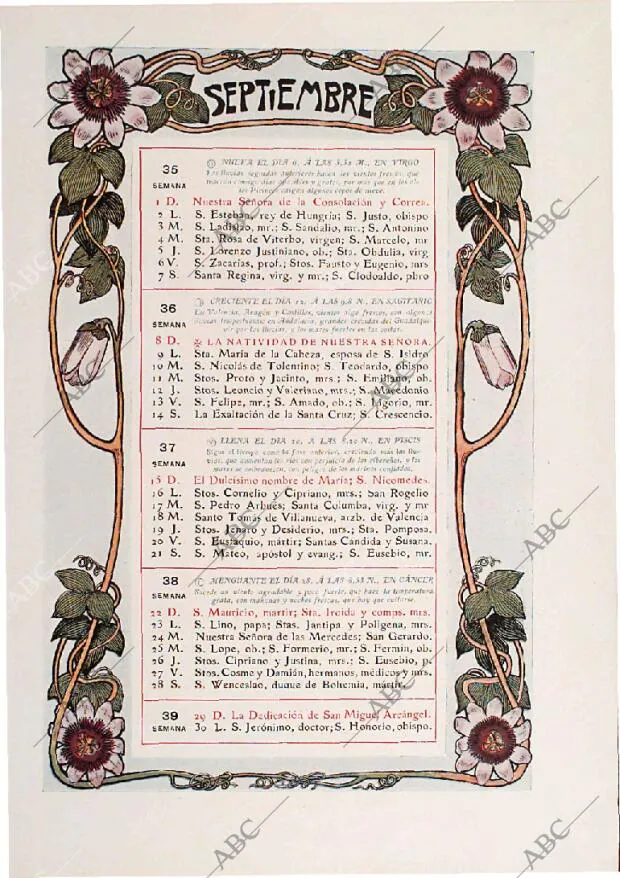 SEPTIEMBRE
35
SEMANA
NUEVA EL DIA 6, Á LAS 5,52 M., EN VIRGO
1 D. Nuestra Señora de la Consolación y Correa.
2 L. S. Esteban, rey de Hungría; S. Justo, obispo
3 M. S. Ladislao, mr.; S. Sandalio, mr.; S. Antonino
4 M. Sta. Rosa de Viterbo, virgen; S. Marcelo, mr
5 J. S. Lorenzo Justiniano, ob.; Sta. Obdulia, virg
6 V. S. Zacarías, prof.; Stos. Fausto y Eugenio, mrs
7 S. Santa Regina, virg. y mr.; S. Clodoaldo, pbro
36
SEMANA
CRECIENTE EL DIA 12, Á LAS 9,8 N., EN SAGITARIO
En Valencia, Aragón y Castillas, vientos algo frescos, con algunas
lluvias tempestuosas; en Andalucía, grandes crecidas del Guadalqui-
vir por las lluvias, y los mares fuertes en las costas.
8 D. ✠ LA NATIVIDAD DE NUESTRA SEÑORA.
9 L. Sta. María de la Cabeza, esposa de S. Isidro
10 M. S. Nicolás de Tolentino; S. Teodardo, obispo
11 M. Stos. Proto y Jacinto, mrs.; S. Emiliano, ob.
12 J. Stos. Leoncio y Valeriano, mrs.; S. Macedonio
13 V. S. Felipe, mr.; S. Amado, ob.; S. Ligorio, mr.
14 S. La Exaltación de la Santa Cruz; S. Crescencio.
37
SEMANA
LLENA EL DIA 20, Á LAS 8,20 N., EN PISCIS
Sigue el tiempo como la fase anterior, creciendo más las llu-
vias, que aumentan los ríos con perjuicio de los ribereños, y los
mares se embravecen, con peligro de los marinos confiados.
15 D. El Dulcísimo nombre de María; S. Nicomedes.
16 L. Stos. Cornelio y Cipriano, mrs.; San Rogelio
17 M. S. Pedro Arbués; Santa Columba, virg. y mr
18 M. Santo Tomás de Villanueva, arzb. de Valencia
19 J. Stos. Jenaro y Desiderio, mrs.; Sta. Pomposa.
20 V. S. Eustaquio, mártir; Santas Candida y Susana.
21 S. S. Mateo, apóstol y evang.; S. Eusebio, mr.
38
SEMANA
MENGUANTE EL DÍA 28, Á LAS 6,53 N., EN CÁNCER
Sucede un viento agradable y poco fuerte, que hace la temperatura
grata, con mañanas y noches frescas, que hay que cuidarse.
22 D. S. Mauricio, martir; Sta. Iroida y comps. mrs.
23 L. S. Lino, papa; Stas. Jantipa y Poligena, mrs.
24 M. Nuestra Señora de las Mercedes; San Gerardo.
25 M. S. Lope, ob.; S. Formerio, mr.; S. Fermín, ob.
26 J. Stos. Cipriano y Justina, mrs.; S. Eusebio, p.
27 V. Stos. Cosme y Damián, hermanos, médicos y mrs.
28 S. S. Wenceslao, duque de Bohemia, mártir.
39
SEMANA
29 D. La Dedicación de San Miguel Arcángel.
30 L. S. Jerónimo, doctor; S. Honorio, obispo.